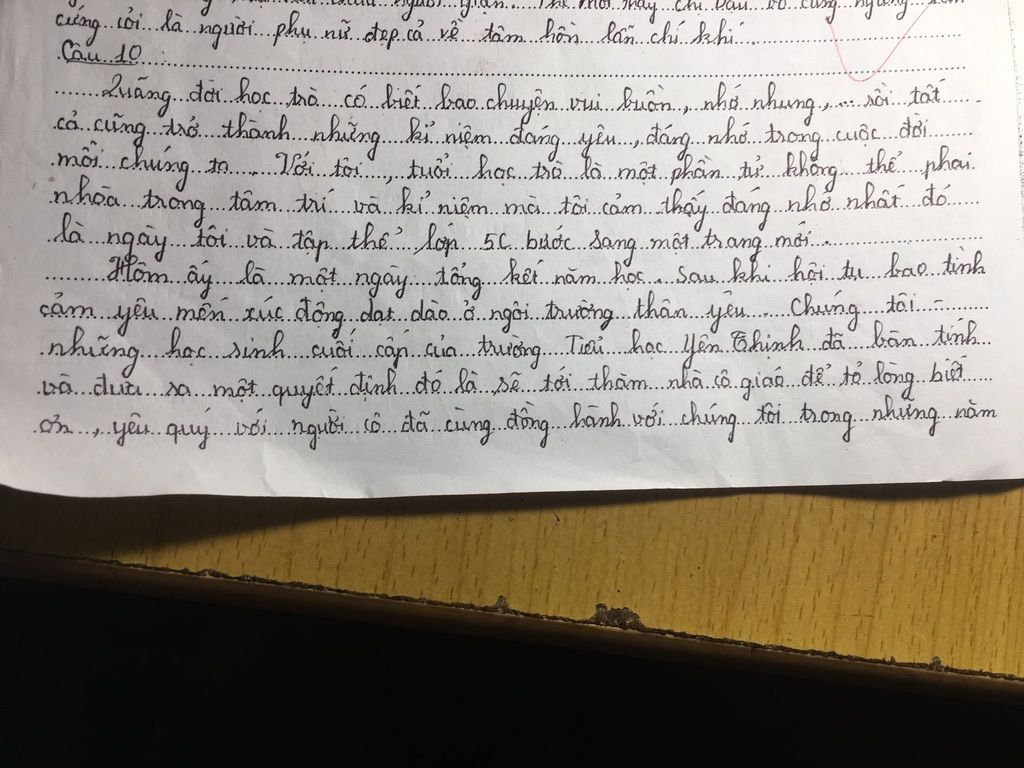 người
cứng cỏi là người phụ nữ đẹp cả về tâm hồn lẫn chí khí.
Câu 10 :
Quãng đời học trò có biết bao chuyện vui buồn, nhớ nhung, ... rồi tất
cả cũng trở thành những kỉ niệm đáng yêu, đáng nhớ trong cuộc đời
mỗi chúng ta. Với tôi, tuổi học trò là một phần tử không thể phai
nhòa trong tâm trí và kỉ niệm mà tôi cảm thấy đáng nhớ nhất đó
là ngày tôi và tập thể lớp 5C bước sang một trang mới.
Hôm ấy là một ngày tổng kết năm học. Sau khi hội tụ bao tình
cảm yêu mến xúc động dạt dào ở ngôi trường thân yêu. Chúng tôi -
những học sinh cuối cấp của trương Tiểu học Yên Thịnh đã bàn tính
và đưa ra một quyết định đó là sẽ tới thăm nhà cô giáo để tỏ lòng biết
ơn, yêu quý với người cô đã cùng đồng hành với chúng tôi trong những năm